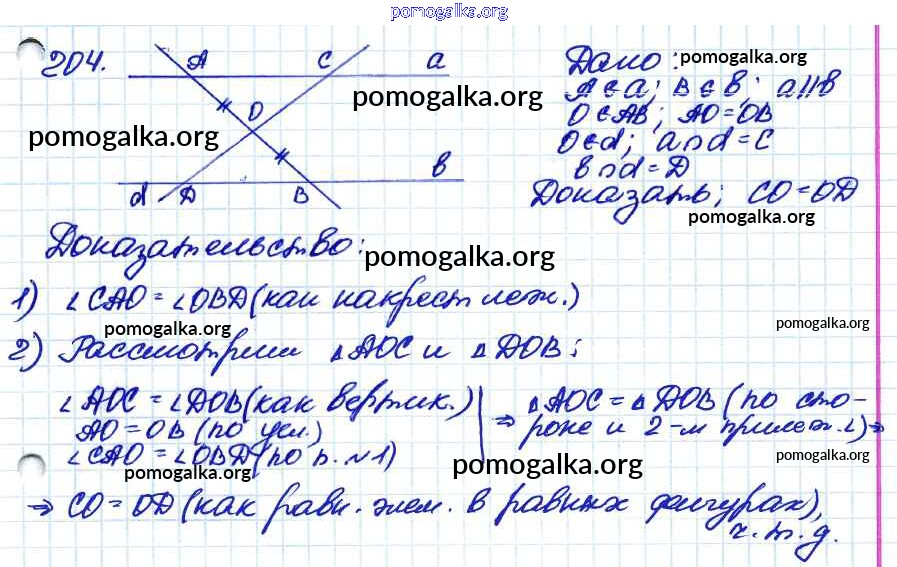 pomogalka.org
204.
A C a
O
b
d D B
Дано:
A ∈ a; B ∈ b; a || b
O ∈ AB; AO = OB
O ∈ d; a ∩ d = C
b ∩ d = D
Доказать; CO = OD
pomogalka.org
pomogalka.org
pomogalka.org
pomogalka.org
Доказательство:
pomogalka.org
1) ∠CAO = ∠OBD (как накрест леж.)
pomogalka.org
pomogalka.org
2) Рассмотрим △AOC и △DOB;
∠AOC = ∠DOB (как вертик.)
AO = OB (по усл.)
∠CAO = ∠OBD (по п. №1)
⇒ △AOC = △DOB (по сто-
роне и 2-м прилеж. ∠) ⇒
pomogalka.org
pomogalka.org
pomogalka.org
⇒ CO = OD (как равн. элем. в равных фигурах),
ч.т.д.